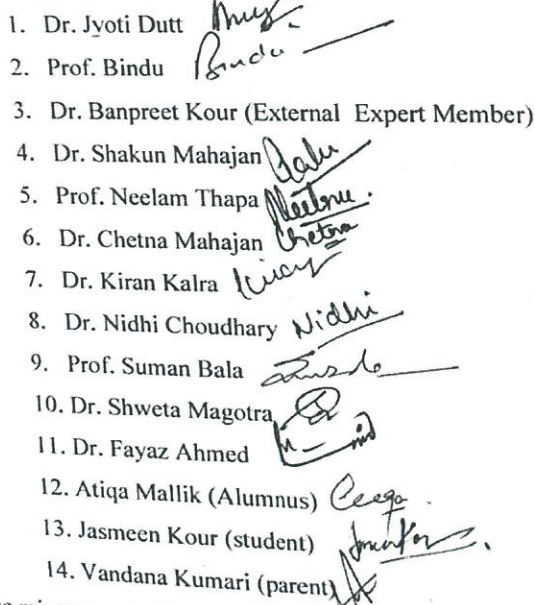 1. Dr. Jyoti Dutt
2. Prof. Bindu Bindu
3. Dr. Banpreet Kour (External Expert Member)
4. Dr. Shakun Mahajan
5. Prof. Neelam Thapa
6. Dr. Chetna Mahajan Chetna
7. Dr. Kiran Kalra
8. Dr. Nidhi Choudhary Nidhi
9. Prof. Suman Bala
10. Dr. Shweta Magotra
11. Dr. Fayaz Ahmed
12. Atiqa Mallik (Alumnus)
13. Jasmeen Kour (student)
14. Vandana Kumari (parent)